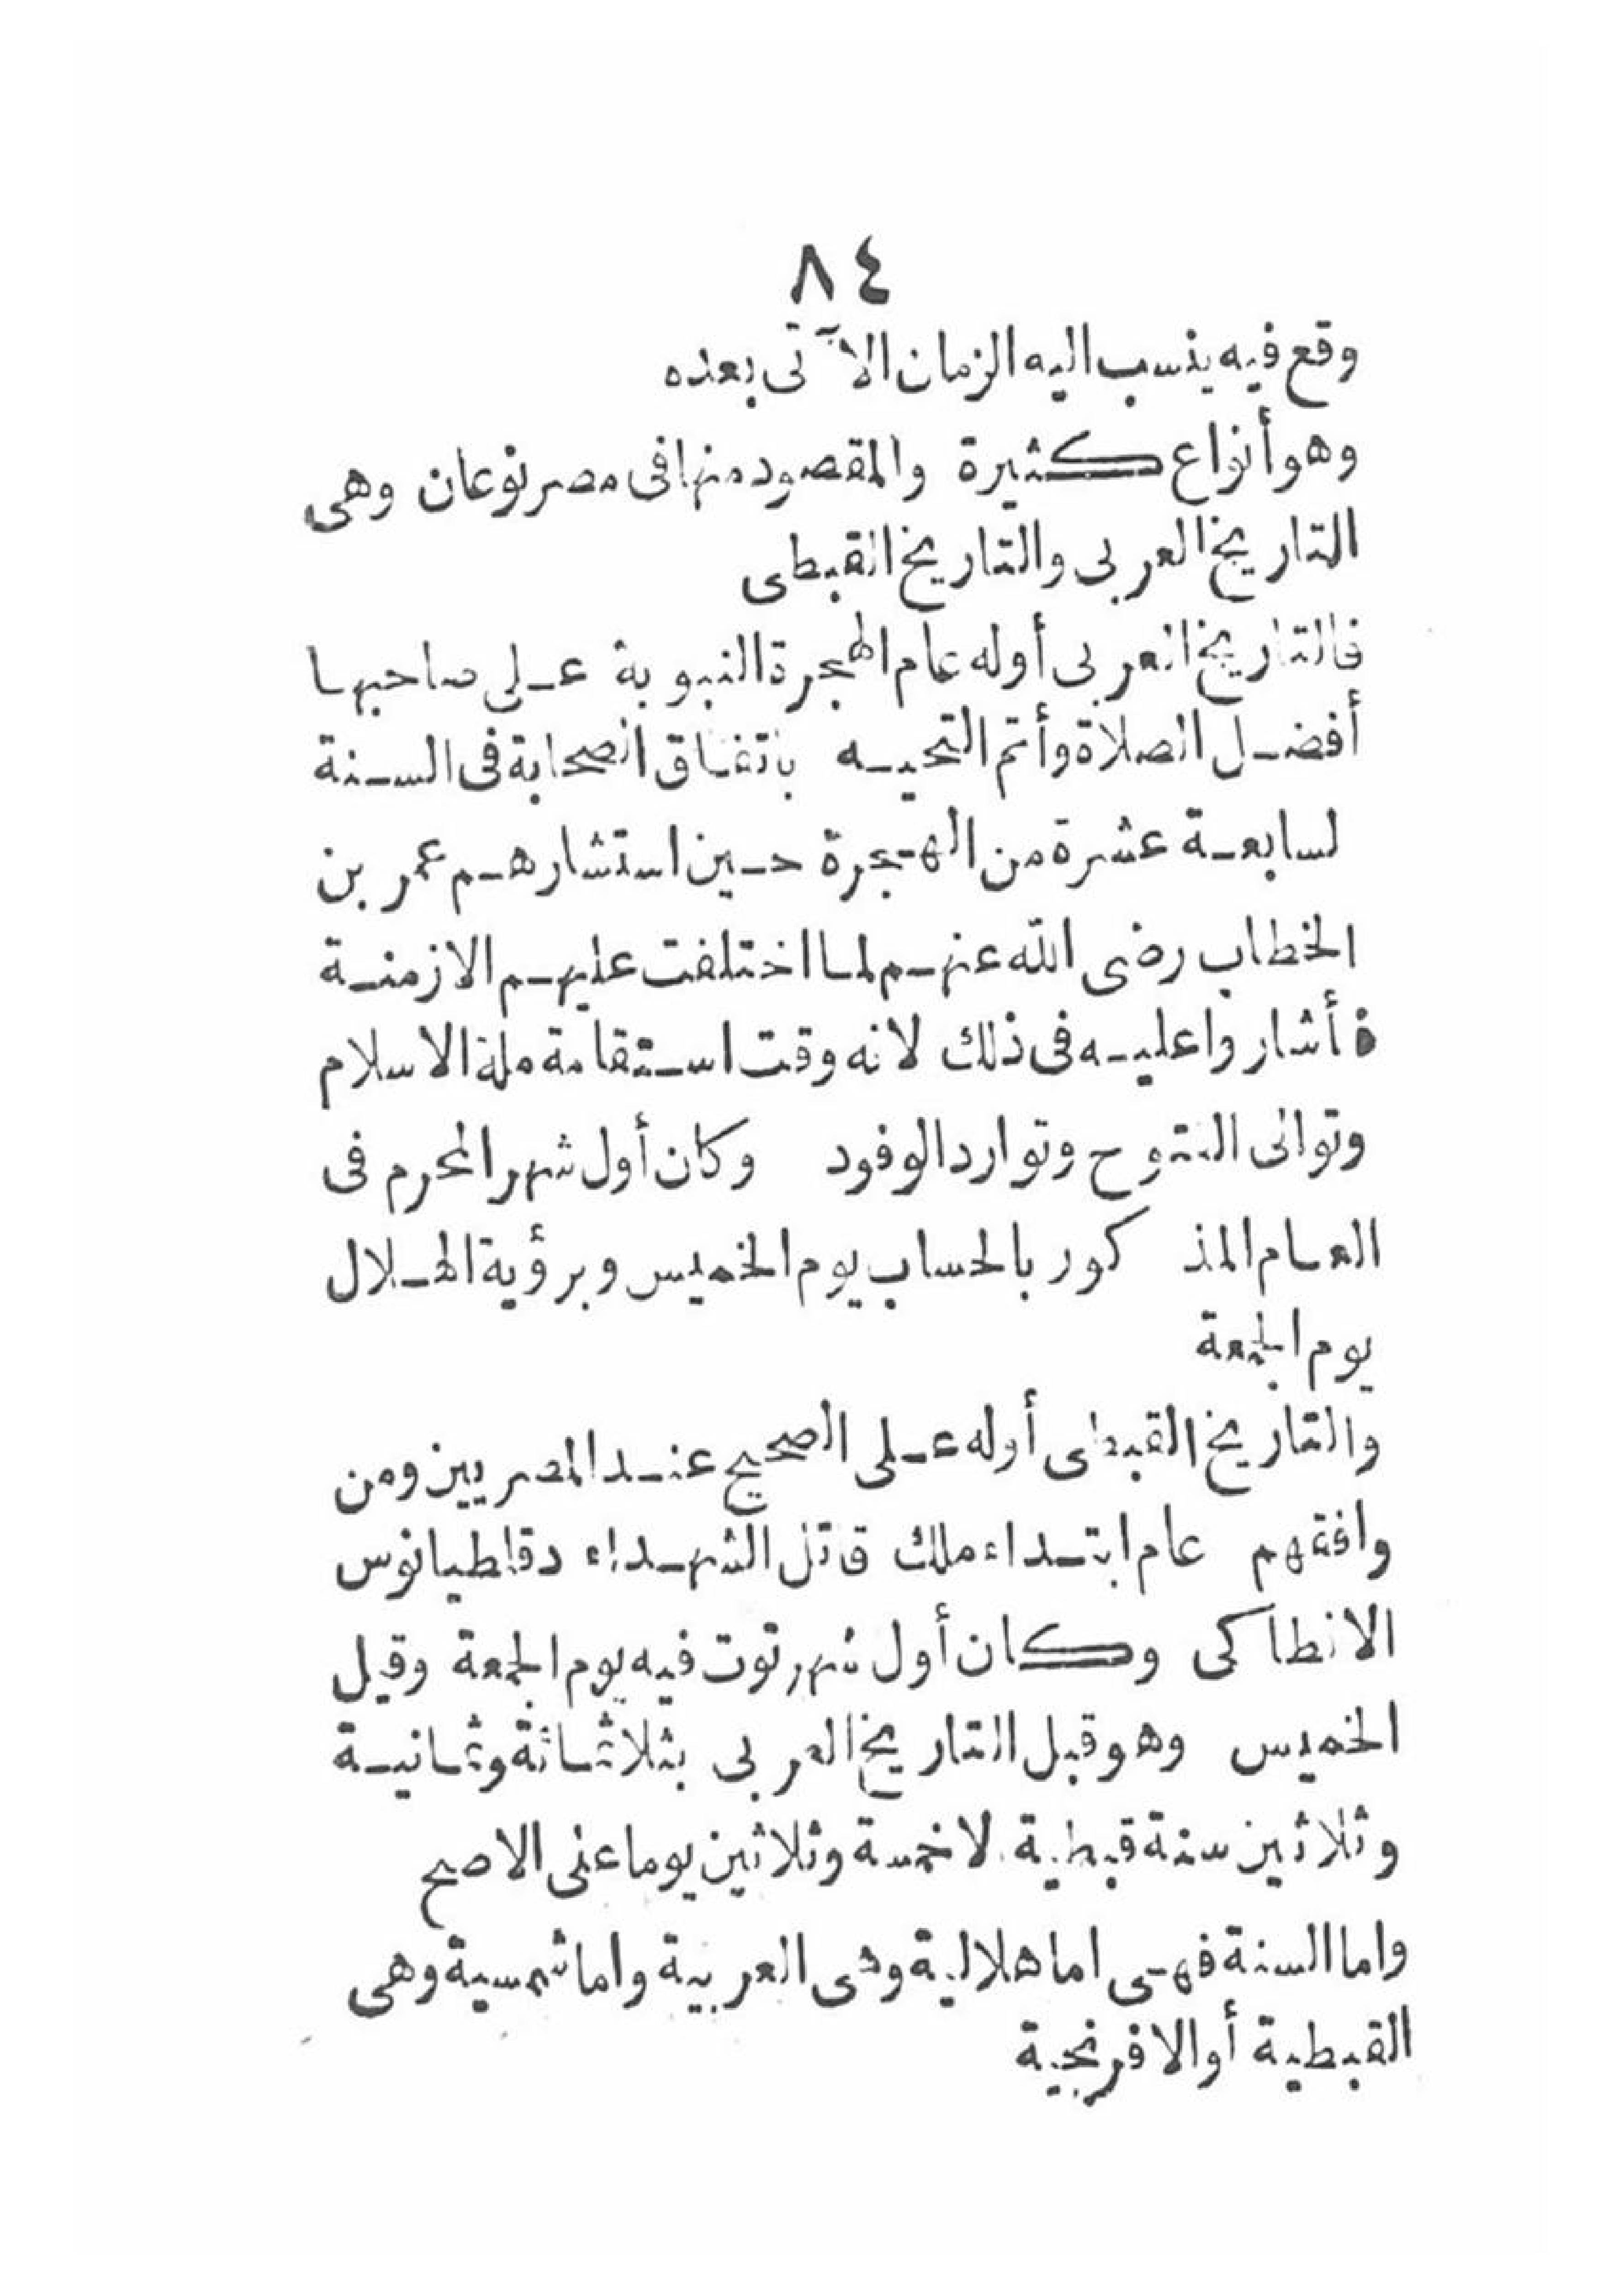 ٨٤
وقع فيه ينسب اليه الزمان الآتى بعده
وهو أنواع كثيرة والمقصود منها فى مصر نوعان وهى
التاريخ العربى والتاريخ القبطى
فالتاريخ العربى أوله عام الهجرة النبوية على صاحبها
أفضل الصلاة وأتم التحيه باتفاق الصحابة فى السنة
لسابعة عشرة من الهجرة حين استشارهم عمر بن
الخطاب رضى الله عنهم لما اختلفت عليهم الازمنة
فأشاروا عليه فى ذلك لانه وقت استقامة ملة الاسلام
وتوالى الفتوح وتوارد الوفود وكان أول شهر المحرم فى
العام المذكور بالحساب يوم الخميس وبرؤية الهلال
يوم الجمعة
والتاريخ القبطى أوله على الصحيح عند المصريين ومن
وافقهم عام ابتداء ملك قاتل الشهداء دقلطيانوس
الانطاكى وكان أول شهر توت فيه يوم الجمعة وقيل
الخميس وهو قبل التاريخ العربى بثلاثمائة وثمانية
وثلاثين سنة قبطية لا خمسة وثلاثين يوما على الاصح
واما السنة فهى اما هلالية وهى العربية واما شمسية وهى
القبطية أو الافرنجية